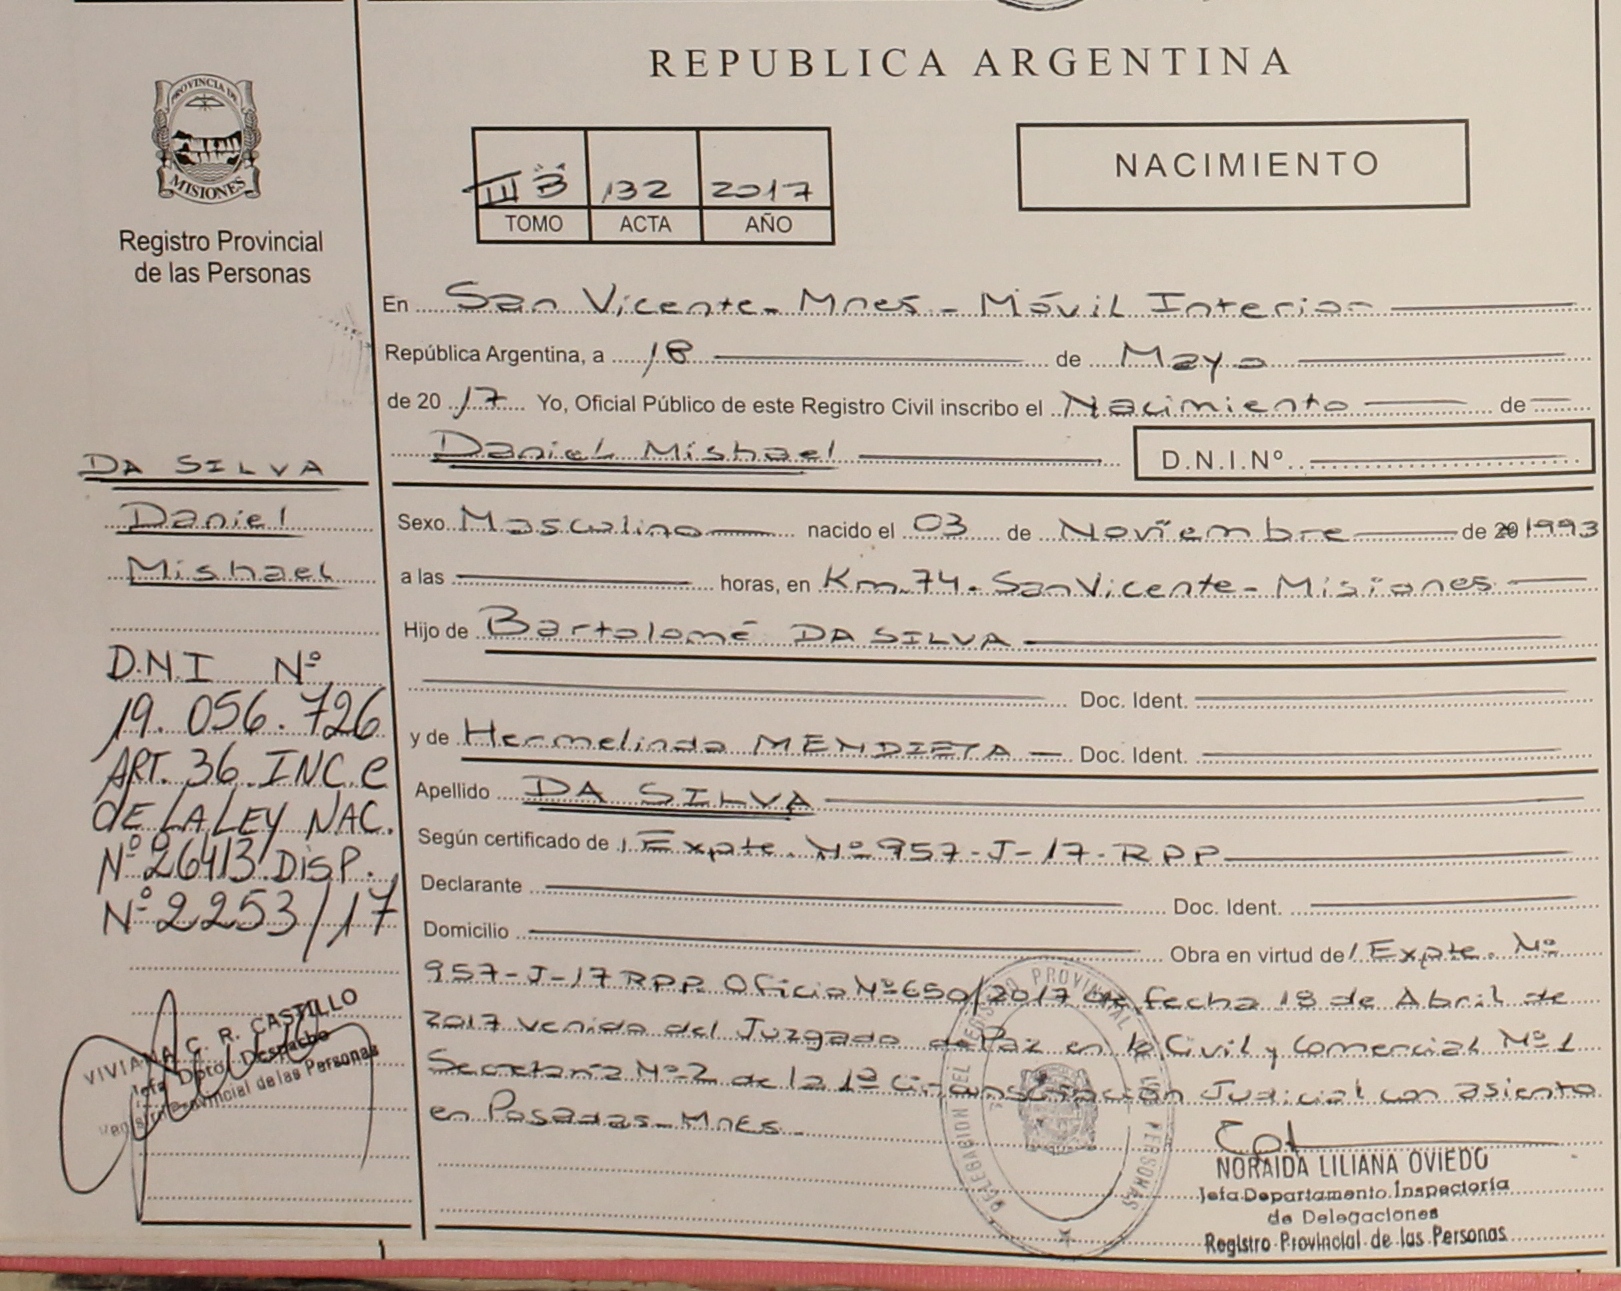 REPUBLICA ARGENTINA
PROVINCIA DE
MISIONES
Registro Provincial
de las Personas
III B 132 2017
TOMO ACTA AÑO
NACIMIENTO
En San Vicente - Mnes - Móvil Interior
República Argentina, a 18 de Mayo
de 2017 Yo, Oficial Público de este Registro Civil inscribo el Nacimiento de
Daniel Mishael D.N.I.Nº
Sexo Masculino nacido el 03 de Noviembre de 20 1993
a las horas, en Km. 74 - San Vicente - Misiones
Hijo de Bartolomé DA SILVA
Doc. Ident.
y de Hermelinda MENDIETA Doc. Ident.
Apellido DA SILVA
Según certificado de Expte. Nº 957-J-17-RPP
Declarante Doc. Ident.
Domicilio Obra en virtud de Expte. Nº
957-J-17 RPP. Oficio Nº 650/2017 de fecha 18 de Abril de
2017 venido del Juzgado de Paz en lo Civil y Comercial Nº 1
Secretaría Nº 2 de la 1º Circunscripción Judicial con asiento
en Posadas - Mnes -
DA SILVA
Daniel
Mishael
D.N.I Nº
19.056.726
ART. 36 INC. e
DE LA LEY NAC.
Nº 26413 DISP.
Nº 2253/17
VIVIANA C. R. CASTILLO
Jefa Dpto. Despacho
Registro Provincial de las Personas
NORAIDA LILIANA OVIEDO
Jefa Departamento Inspectoría
de Delegaciones
Registro Provincial de las Personas